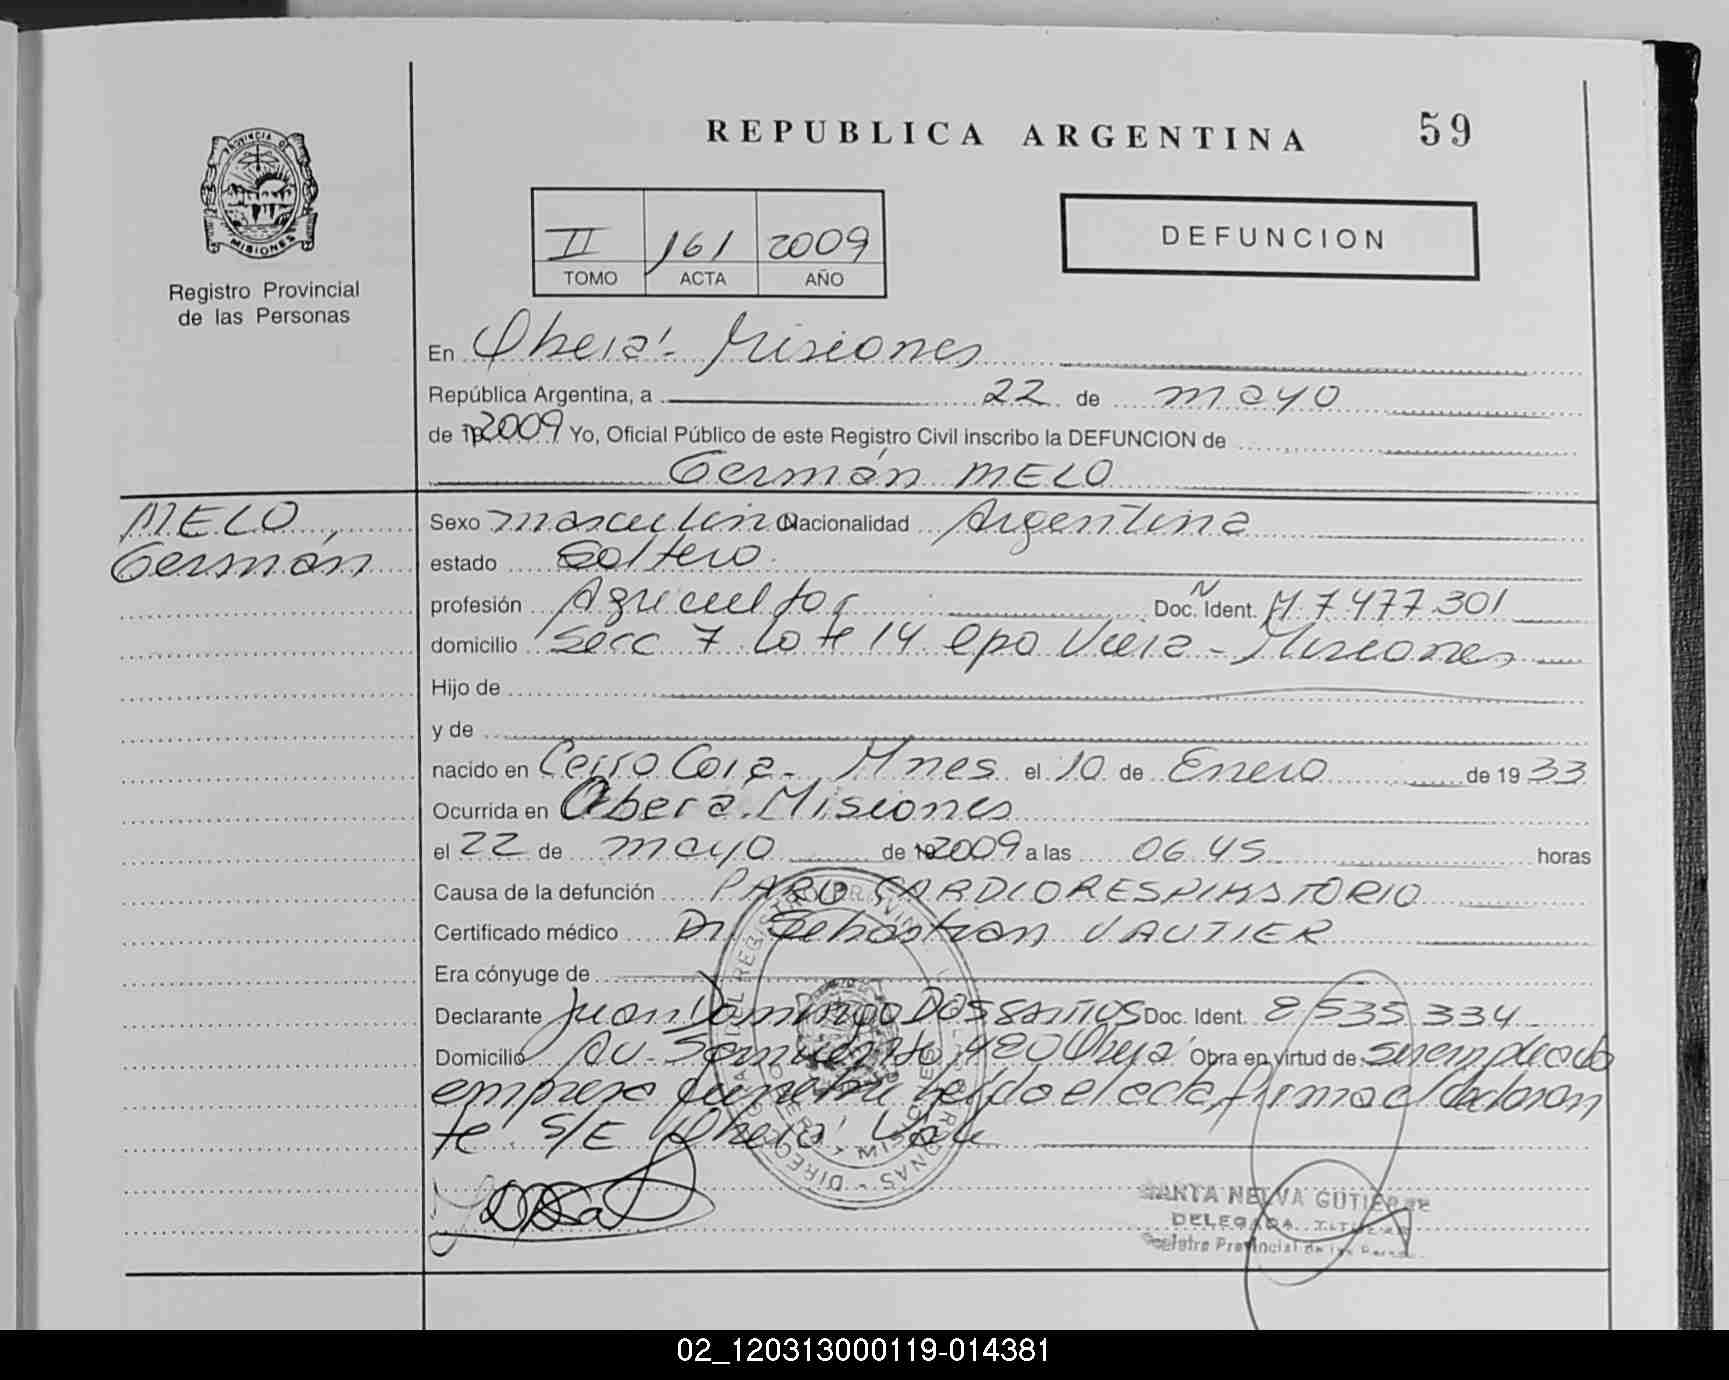 REPUBLICA ARGENTINA
59
PROVINCIA DE
MISIONES
Registro Provincial
de las Personas
II 161 2009
TOMO ACTA AÑO
DEFUNCION
En Oberá - Misiones
República Argentina, a 22 de mayo
de 19 2009 Yo, Oficial Público de este Registro Civil inscribo la DEFUNCION de
Germán MELO
MELO,
Germán
Sexo masculino Nacionalidad Argentina
estado Soltero
profesión Agricultor Doc. Ident. M 7.477.301
domicilio Secc 7 Lote 14 Cpo Viera - Misiones
Hijo de
y de
nacido en Cerro Corá - Mnes el 10 de Enero de 19 33
Ocurrida en Oberá. Misiones
el 22 de mayo de 19 2009 a las 06.45 horas
Causa de la defunción PARO CARDIORESPIRATORIO
Certificado médico Dr. Sebastian VAUTIER
Era cónyuge de
Declarante Juan Domingo DOS SANTOS Doc. Ident. 8.535.334
Domicilio Av. Sarmiento 480 Oberá Obra en virtud de ser empleado
empresa funebre leida el acta, firma el declaran
te. S/E Oberá Vale
SANTA NELVA GUTIERREZ
DELEGADA TITULAR
Registro Provincial de las Personas
02_120313000119-014381